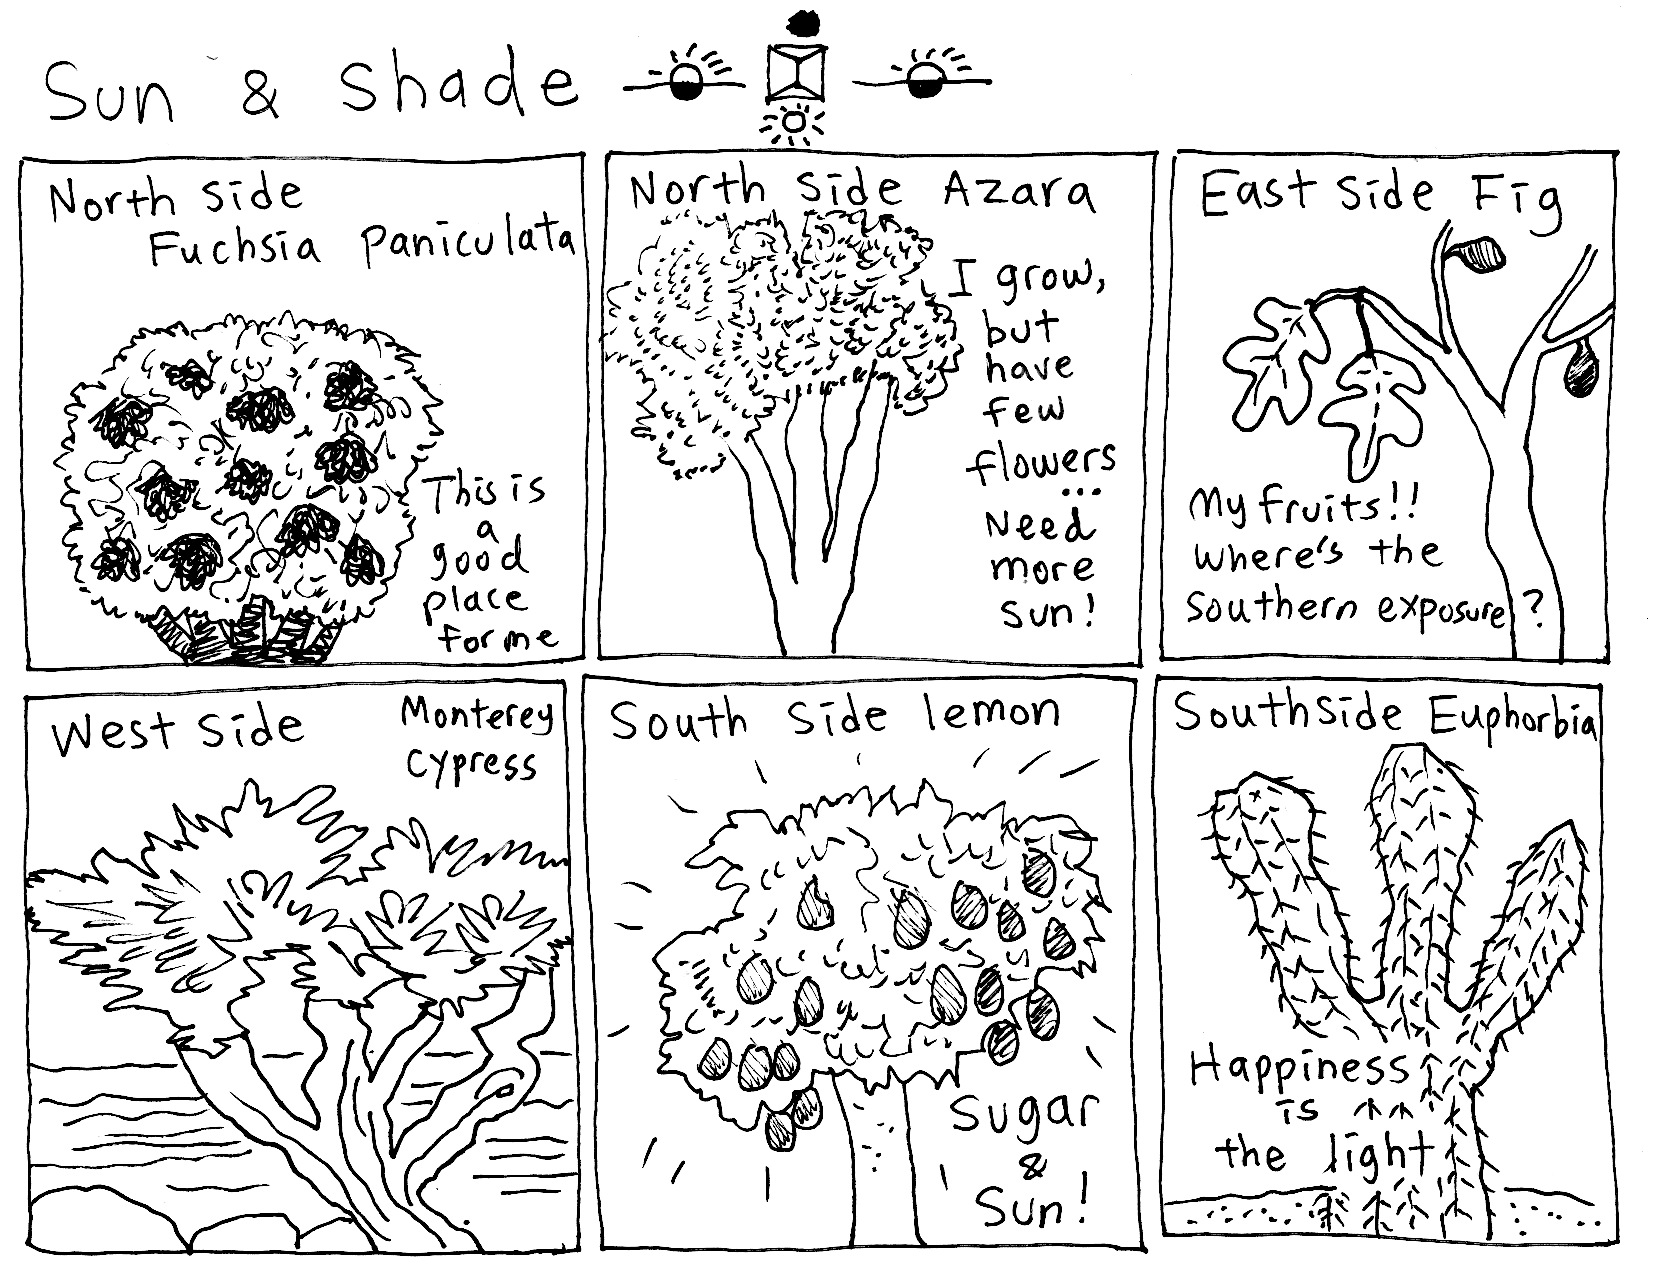 Sun & Shade
North Side
Fuchsia Paniculata
This is
a
good
place
for me
North Side Azara
I grow,
but
have
few
flowers
...
Need
more
sun!
East Side Fig
My fruits!!
where's the
southern exposure?
West Side
Monterey
Cypress
South Side lemon
Sugar
&
Sun!
Southside Euphorbia
Happiness
is
the light